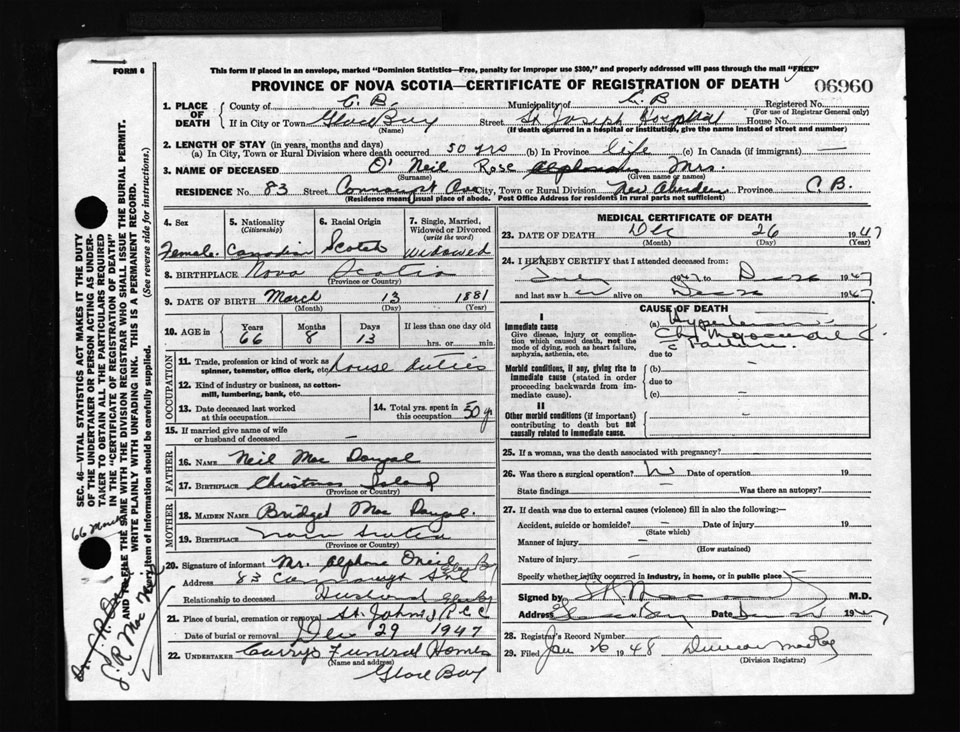 FORM 6
This form if placed in an envelope, marked "Dominion Statistics—Free, penalty for improper use $300," and properly addressed will pass through the mail "FREE"
PROVINCE OF NOVA SCOTIA—CERTIFICATE OF REGISTRATION OF DEATH
06960
1. PLACE OF DEATH
County of C. B. Municipality of C. B Registered No.
(For use of Registrar General only)
If in City or Town Glace Bay Street St. Joseph Hospital House No.
(Name) (If death occurred in a hospital or institution, give the name instead of street and number)
2. LENGTH OF STAY (in years, months and days)
(a) In City, Town or Rural Division where death occurred 50 yrs (b) In Province life (c) In Canada (if immigrant) —
3. NAME OF DECEASED O'Neil Rose Alphonsus Mrs.
(Surname) (Given name or names)
RESIDENCE No. 83 Street Connaught Ave City, Town or Rural Division New Aberdeen Province C. B.
(Residence means usual place of abode. Post Office Address for residents in rural parts not sufficient)
4. Sex
Female.
5. Nationality
(Citizenship)
Canadian
6. Racial Origin
Scotch
7. Single, Married, Widowed or Divorced
(write the word)
Widowed
8. BIRTHPLACE Nova Scotia
(Province or Country)
9. DATE OF BIRTH March 13 1881
(Month) (Day) (Year)
10. AGE in
Years Months Days If less than one day old
66 8 13 hrs. or min.
OCCUPATION
11. Trade, profession or kind of work as spinner, teamster, office clerk, etc. house duties
12. Kind of industry or business, as cotton-mill, lumbering, bank, etc.
13. Date deceased last worked at this occupation
14. Total yrs. spent in this occupation 50 yr
15. If married give name of wife or husband of deceased —
FATHER
16. NAME Neil Mac Dougal
17. BIRTHPLACE Christmas Island
(Province or Country)
MOTHER
18. MAIDEN NAME Bridget Mac Dougal
19. BIRTHPLACE Nova Scotia
(Province or Country)
20. Signature of informant Mr. Alphons O'Neil Glace Bay
Address 83 Connaugh Ave
Relationship to deceased Husband Glace Bay
21. Place of burial, cremation or removal St. Johns R.C.C
Date of burial or removal Dec 29 1947
22. UNDERTAKER Curry's Funeral Homes
(Name and address)
Glace Bay
MEDICAL CERTIFICATE OF DEATH
23. DATE OF DEATH Dec 26 1947
(Month) (Day) (Year)
24. I HEREBY CERTIFY that I attended deceased from:
July 1947 to Dec 1947
and last saw her alive on Dec 1947
CAUSE OF DEATH
I
Immediate cause
Give disease, injury or complication which caused death, not the mode of dying, such as heart failure, asphyxia, asthenia, etc.
(a) Hypertension
due to
Morbid conditions, if any, giving rise to immediate cause (stated in order proceeding backwards from immediate cause).
(b) —
due to
(c) —
II
Other morbid conditions (if important) contributing to death but not causally related to immediate cause.
25. If a woman, was the death associated with pregnancy?
26. Was there a surgical operation? No Date of operation 19
State findings — Was there an autopsy?
27. If death was due to external causes (violence) fill in also the following:—
Accident, suicide or homicide? — Date of injury 19
(State which)
Manner of injury —
(How sustained)
Nature of injury —
Specify whether injury occurred in industry, in home, or in public place
Signed by M.D.
Address Glace Bay Date Dec 1947
28. Registrar's Record Number
29. Filed Jan 26 1948 Duncan MacRae
(Division Registrar)
SEC. 46—VITAL STATISTICS ACT MAKES IT THE DUTY
OF THE UNDERTAKER OR PERSON ACTING AS UNDER-
TAKER TO OBTAIN ALL THE PARTICULARS REQUIRED
IN THE "CERTIFICATE OF REGISTRATION OF DEATH"
AND FILE THE SAME WITH THE DIVISION REGISTRAR WHO SHALL ISSUE THE BURIAL PERMIT.
WRITE PLAINLY WITH UNFADING INK. THIS IS A PERMANENT RECORD.
Every item of information should be carefully supplied. (See reverse side for instructions.)
66